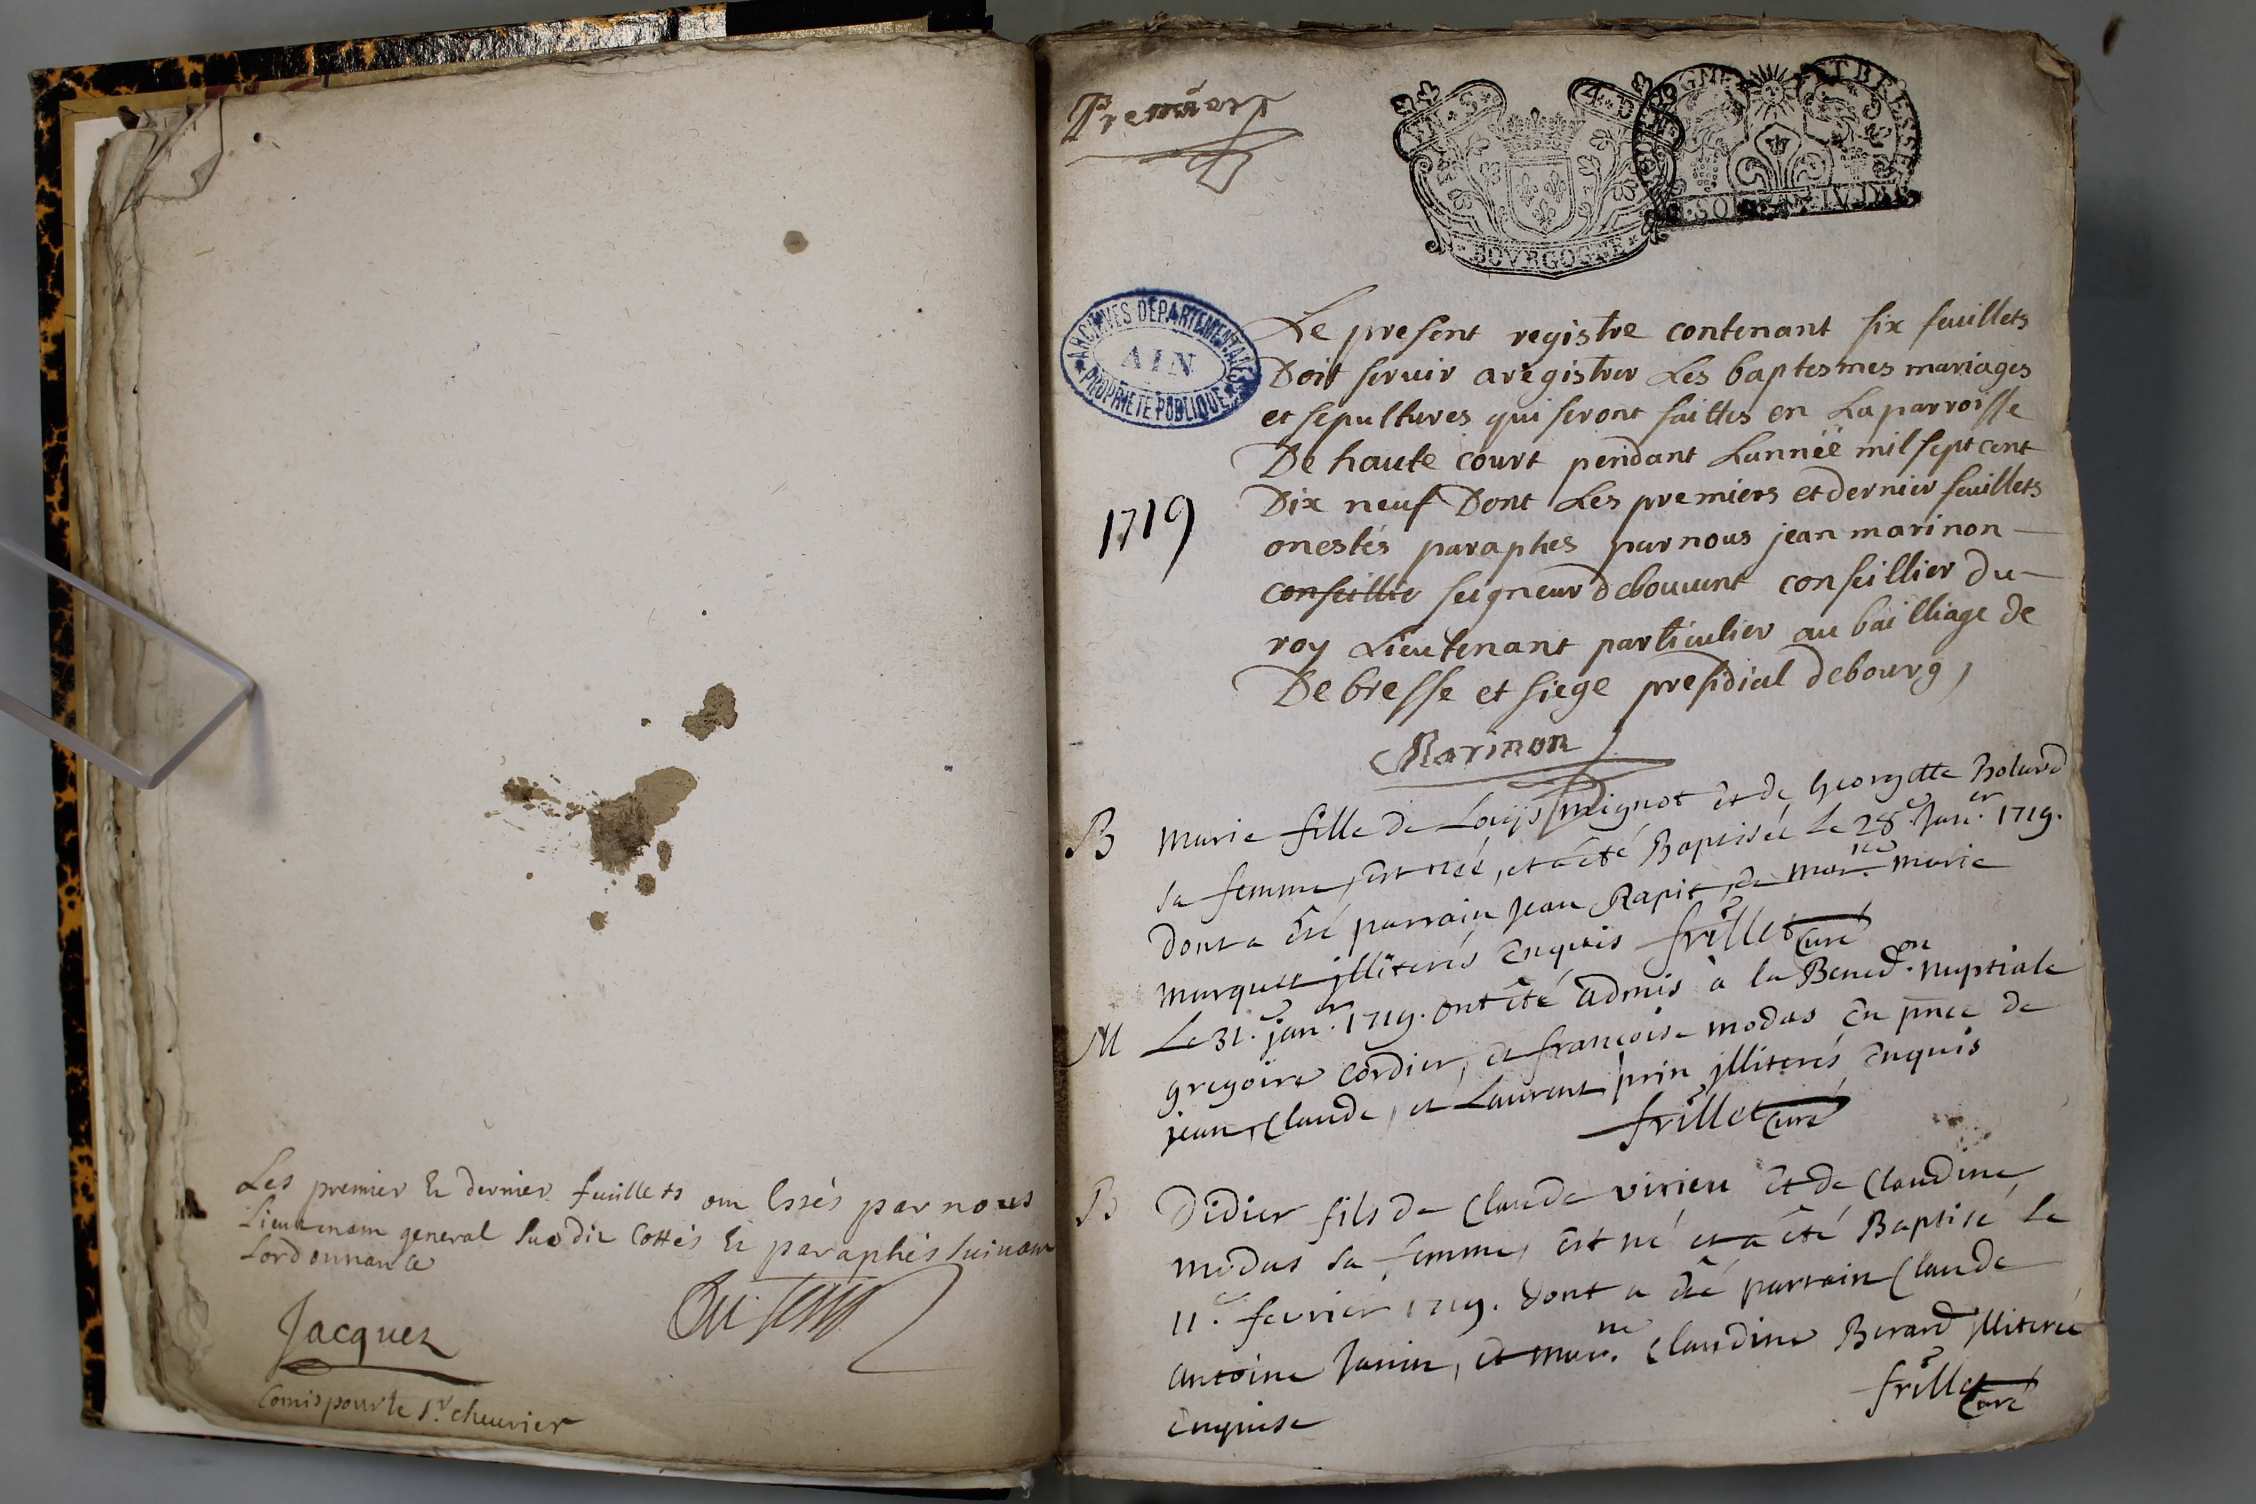 Les premier Et dernier feuillets ont Estés par nous
Lieutenant general susdit Cottés Et paraphés suivant
Lordonnance
Jacquez
Comis pour le Sr. cheuvrier
Premier
BOVRGOGNE
ARCHIVES DEPARTEMENTALES
AIN
PROPRIETE PUBLIQUE
Le present registre contenant six feuillets
Doit servir aregistrer Les baptesmes mariages
et sepultures qui seront faittes en La parroisse
De haute court pendant Lannéé mil sept cent
1719
Dix neuf Dont Les premiers et dernier feuillets
onestés paraphes par nous jean marinon
conseillie seigneur debouvent conseillier du
roy Lieutenant particulier au bailliage de
De bresse et siege presidial debourg,
Marinon
B Marie fille de Louys mignot et de georgette
sa femme, est née, et a êté Baptisée le 28e. Janer. 1719.
dont a êté parrain jean Rapit, et marne. marie
marquet jlliterés Enquis frillet Curé
M Le 31e. janer. 1719. ont êté admis à la Benedon. nuptiale
gregoire Cordier, et françoise modas En pnce de
jean, Claude, et Laurent prin jlliterés Enquis
frillet Curé
B Didier fils de Claude virieu et de Claudine
modas sa femme, est né et a êté Baptisé Le
11e. fevrier 1719. dont a êté parrain Claude
antoine Janin, et marne. Claudine Berard jlliterée
Enquise
frillet Curé